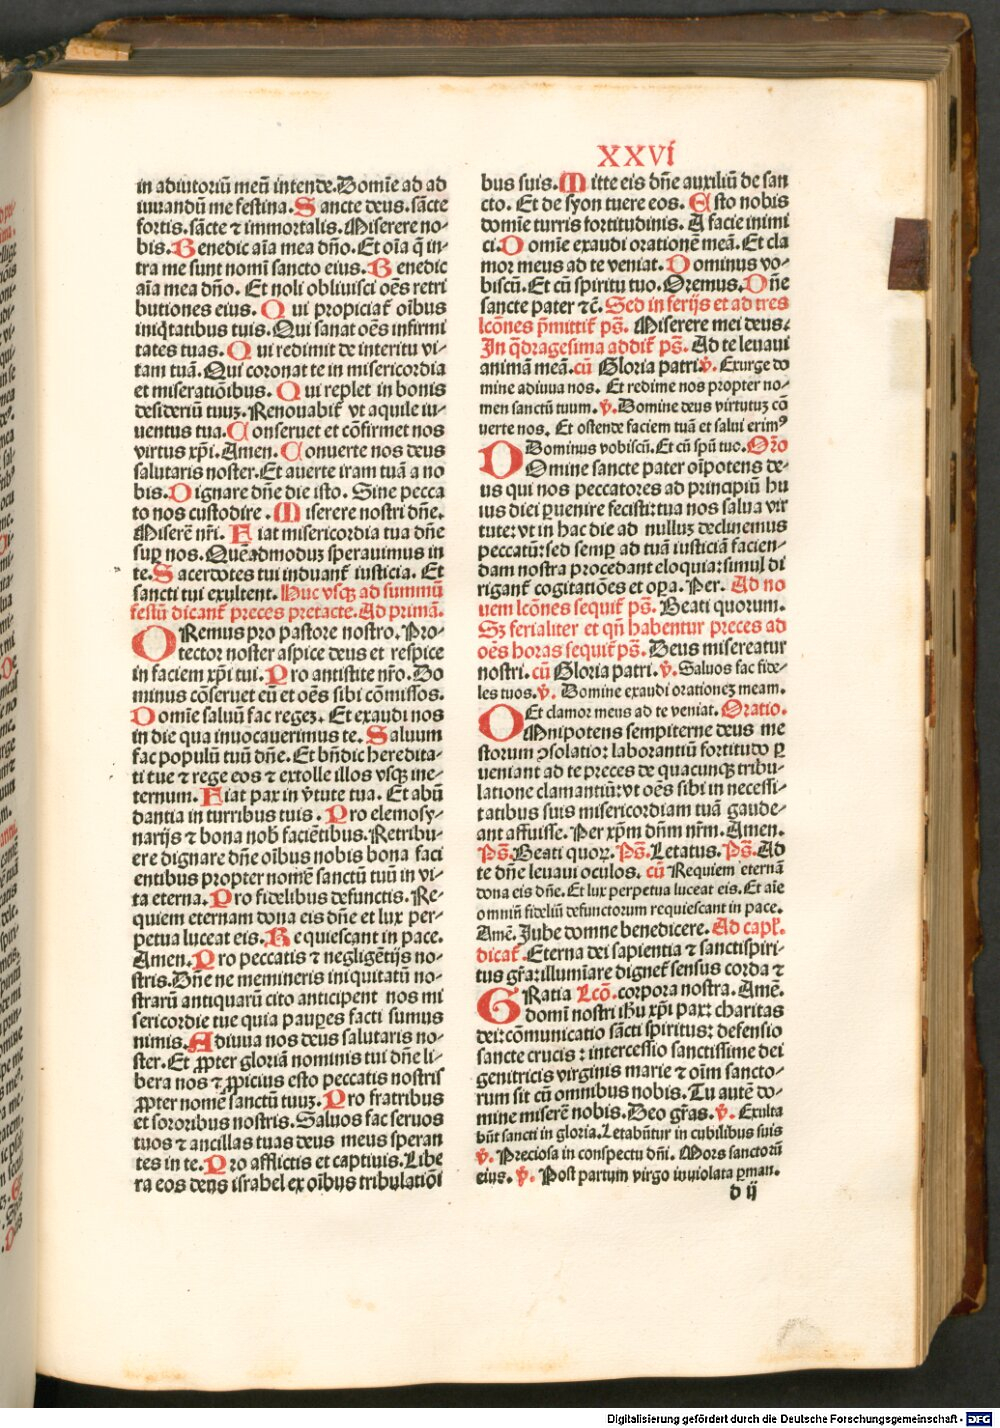 XXVI
in adiutoriū meū intende. Domīe ad ad
iuuandū me festina. Sancte deus. sācte
fortis. sācte ⁊ immortalis. Miserere no-
bis. Benedic aīa mea dño. Et oīa q̄ in-
tra me sunt nomī sancto eius. Benedic
aīa mea dño. Et noli obliuisci oēs retri
butiones eius. Qui propiciat̄ oībus
iniq̄tatibus tuis. Qui sanat oēs infirmi
tates tuas. Qui redimit de interitu vi-
tam tuā. Qui coronat te in misericordia
et miseratiōibus. Qui replet in bonis
desideriū tuuꝫ. Renouabit̄ vt aquile iu-
uentus tua. Conseruet et cōfirmet nos
virtus xp̄i. Amen. Conuerte nos deus
salutaris noster. Et auerte iram tuā a no
bis. Dignare dñe die isto. Sine pecca
to nos custodire. Miserere nostri dñe.
Miserē nr̄i. Fiat misericordia tua dñe
suꝑ nos. Quēadmoduꝫ sperauimus in
te. Sacerdotes tui induant̄ iusticia. Et
sancti tui exultent. Huc vsqꝫ ad summū
festū dicant̄ preces pretacte. Ad primā.
ORemus pro pastore nostro. Pro-
tector noster aspice deus et respice
in faciem xp̄i tui. Pro antistite nr̄o. Do
minus cōseruet eū et oēs sibi cōmissos.
Domīe saluū fac regeꝫ. Et exaudi nos
in die qua inuocauerimus te. Saluum
fac populū tuū dñe. Et bñdic heredita-
ti tue ⁊ rege eos ⁊ extolle illos vsqꝫ ine-
ternum. Fiat pax in v̄tute tua. Et abū
dantia in turribus tuis. Pro elemosy-
narijs ⁊ bona nob̄ faciētibus. Retribu-
ere dignare dñe oībus nobis bona faci
entibus propter nomē sanctū tuū in vi-
ta eterna. Pro fidelibus defunctis. Re-
quiem eternam dona eis dñe et lux per-
petua luceat eis. Requiescant in pace.
Amen. Pro peccatis ⁊ negligētijs no-
stris. Dñe ne memineris iniquitatū no-
strarū antiquarū cito anticipent nos mi
sericordie tue quia pauꝑes facti sumus
nimis. Adiuua nos deus salutaris no-
ster. Et ꝓpter gloriā nominis tui dñe li-
bera nos ⁊ ꝓpicius esto peccatis nostris
ꝓpter nomē sanctū tuuꝫ. Pro fratribus
et sororibus nostris. Saluos fac seruos
tuos ⁊ ancillas tuas deus meus speran
tes in te. Pro afflictis et captiuis. Libe
ra eos deus israhel ex oībus tribulatiōi
bus suis. Mitte eis dñe auxiliū de san
cto. Et de syon tuere eos. Esto nobis
domīe turris fortitudinis. A facie inimi
ci. Domīe exaudi orationē meā. Et cla
mor meus ad te veniat. Dominus vo-
biscū. Et cū spiritu tuo. Oremus. Dñe
sancte pater ⁊c̄. Sed in ferijs et ad tres
lcōnes p̄mittit̄ ps̄. Miserere mei deus.
In q̄dragesima addit̄ ps̄. Ad te leuaui
animā meā. cū Gloria patri. v̄. Exurge do
mine adiuua nos. Et redime nos propter no-
men sanctū tuum. v̄. Domine deus virtutuꝫ cō
uerte nos. Et ostende faciem tuā et salui erimꝰ
Dominus vobiscū. Et cū spū tuo. Orō
DOmine sancte pater oīpotens de-
us qui nos peccatores ad principiū hu
ius diei ꝑuenire fecisti: tua nos salua vir
tute: vt in hac die ad nulluꝫ declinemus
peccatū: sed semꝑ ad tuā iusticiā facien-
dam nostra procedant eloquia: simul di
rigant̄ cogitatiōes et oꝑa. Per. Ad no
uem lcōnes sequit̄ ps̄. Beati quorum.
Sꝫ ferialiter et qñ habentur preces ad
oēs horas sequit̄ ps̄. Deus misereatur
nostri. cū Gloria patri. v̄. Saluos fac fide-
les tuos. v̄. Domine exaudi orationeꝫ meam.
Et clamor meus ad te veniat. Oratio.
OMnipotens sempiterne deus me
storum ↄsolatio: laborantiū fortitudo ꝑ
ueniant ad te preces de quacunqꝫ tribu-
latione clamantiū: vt oēs sibi in necessi-
tatibus suis misericordiam tuā gaude-
ant affuisse. Per xp̄m dñm nr̄m. Amen.
Ps̄. Beati quoꝝ. Ps̄. Letatus. Ps̄. Ad
te dñe leuaui oculos. cū Requiem eternā
dona eis dñe. Et lux perpetua luceat eis. Et aīe
omniū fideliū defunctorum requiescant in pace.
Amē. Jube domne benedicere. Ad capl̄.
dicat̄. Eterna dei sapientia ⁊ sanctispiri-
tus gr̄a: illumīare dignet̄ sensus corda ⁊
GRatia Lcō. corpora nostra. Amē.
domī nostri ihū xp̄i pax: charitas
dei: cōmunicatio sācti spiritus: defensio
sancte crucis: intercessio sanctissime dei
genitricis virginis marie ⁊ oīm sancto-
rum sit cū omnibus nobis. Tu autē do-
mine miserē nobis. Deo gr̄as. v̄. Exulta
būt sancti in gloria. Letabūtur in cubilibus suis
v̄. Preciosa in conspectu dñi. Mors sanctorū
eius. v̄. Post partum virgo inuiolata ꝑman.
d ij
Digitalisierung gefördert durch die Deutsche Forschungsgemeinschaft - DFG